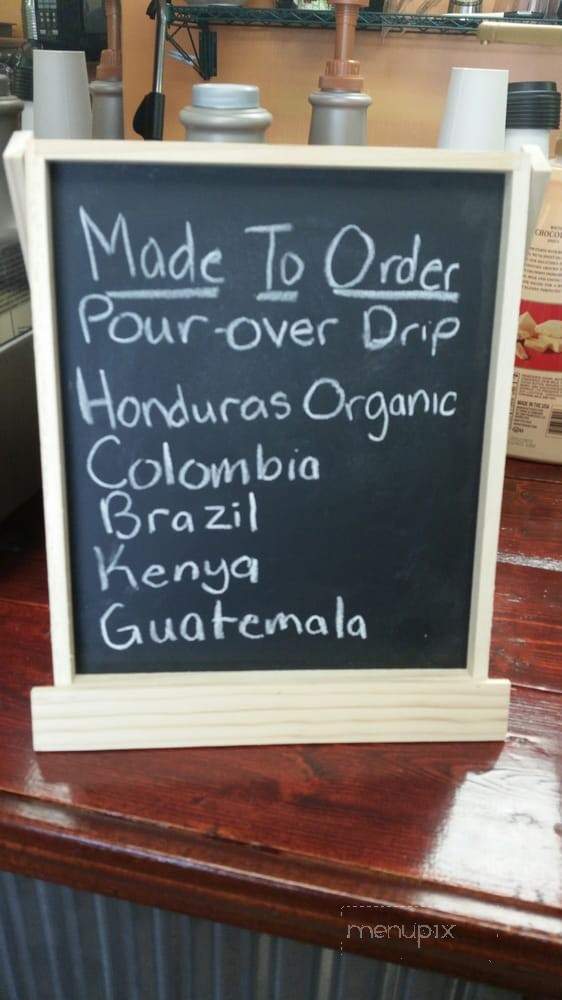 Made To Order
Pour-over Drip
Honduras Organic
Colombia
Brazil
Kenya
Guatemala
CHOCO
MADE IN THE USA
menupix